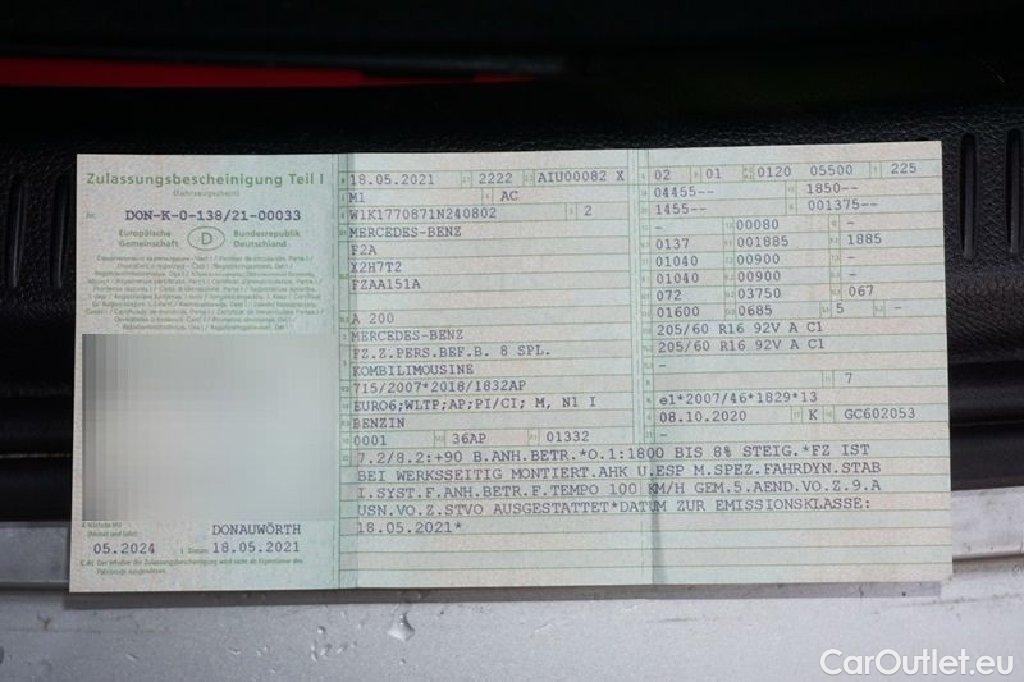 Zulassungsbescheinigung Teil I
(Fahrzeugschein)
Nr. DON-K-0-138/21-00033
Europäische Gemeinschaft
D
Bundesrepublik Deutschland
DONAUWÖRTH
05.2024
18.05.2021
18.05.2021 2222 AIU00082 X
M1 AC
W1K1770871N240802 2
MERCEDES-BENZ
F2A
X2H7T2
FZAA151A
A 200
MERCEDES-BENZ
FZ.Z.PERS.BEF.B. 8 SPL.
KOMBILIMOUSINE
715/2007*2018/1832AP
EURO6;WLTP;AP;PI/CI; M, N1 I
BENZIN
0001 36AP 01332
02 01 0120 05500 225
04455-- 1850--
1455-- 001375--
- 00080 -
0137 001885 1885
01040 00900 -
01040 00900 -
072 03750 067
01600 0685 5 -
205/60 R16 92V A C1
205/60 R16 92V A C1
-
7
e1*2007/46*1829*13
08.10.2020 K GC602053
-
7.2/8.2:+90 B.ANH.BETR.*O.1:1800 BIS 8% STEIG.*FZ IST
BEI WERKSSEITIG MONTIERT.AHK U.ESP M.SPEZ.FAHRDYN.STAB
I.SYST.F.ANH.BETR.F.TEMPO 100 KM/H GEM.5.AEND.VO.Z.9.A
USN.VO.Z.STVO AUSGESTATTET*DATUM ZUR EMISSIONSKLASSE:
18.05.2021*
CarOutlet.eu